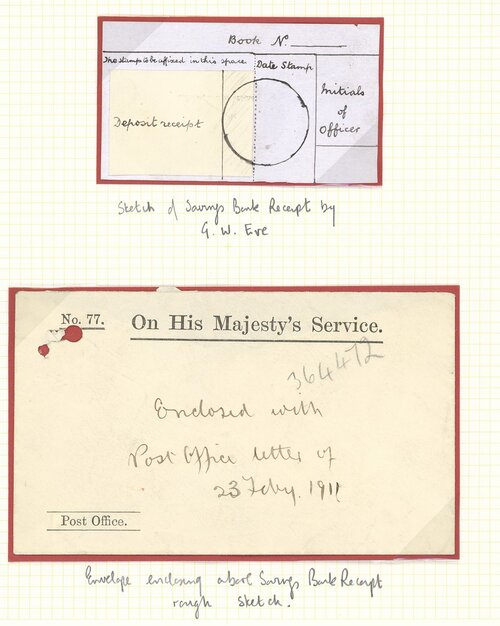 Book No. ______
The stamps to be affixed in this space.
Date Stamp
Initials
of
Officer
Deposit receipt
Sketch of Savings Bank Receipt by
G. W. Eve
No. 77.
On His Majesty's Service.
364472
Enclosed with
Post Office letter of
23 Feby. 1911
Post Office.
Envelope enclosing above Savings Bank Receipt
rough sketch.